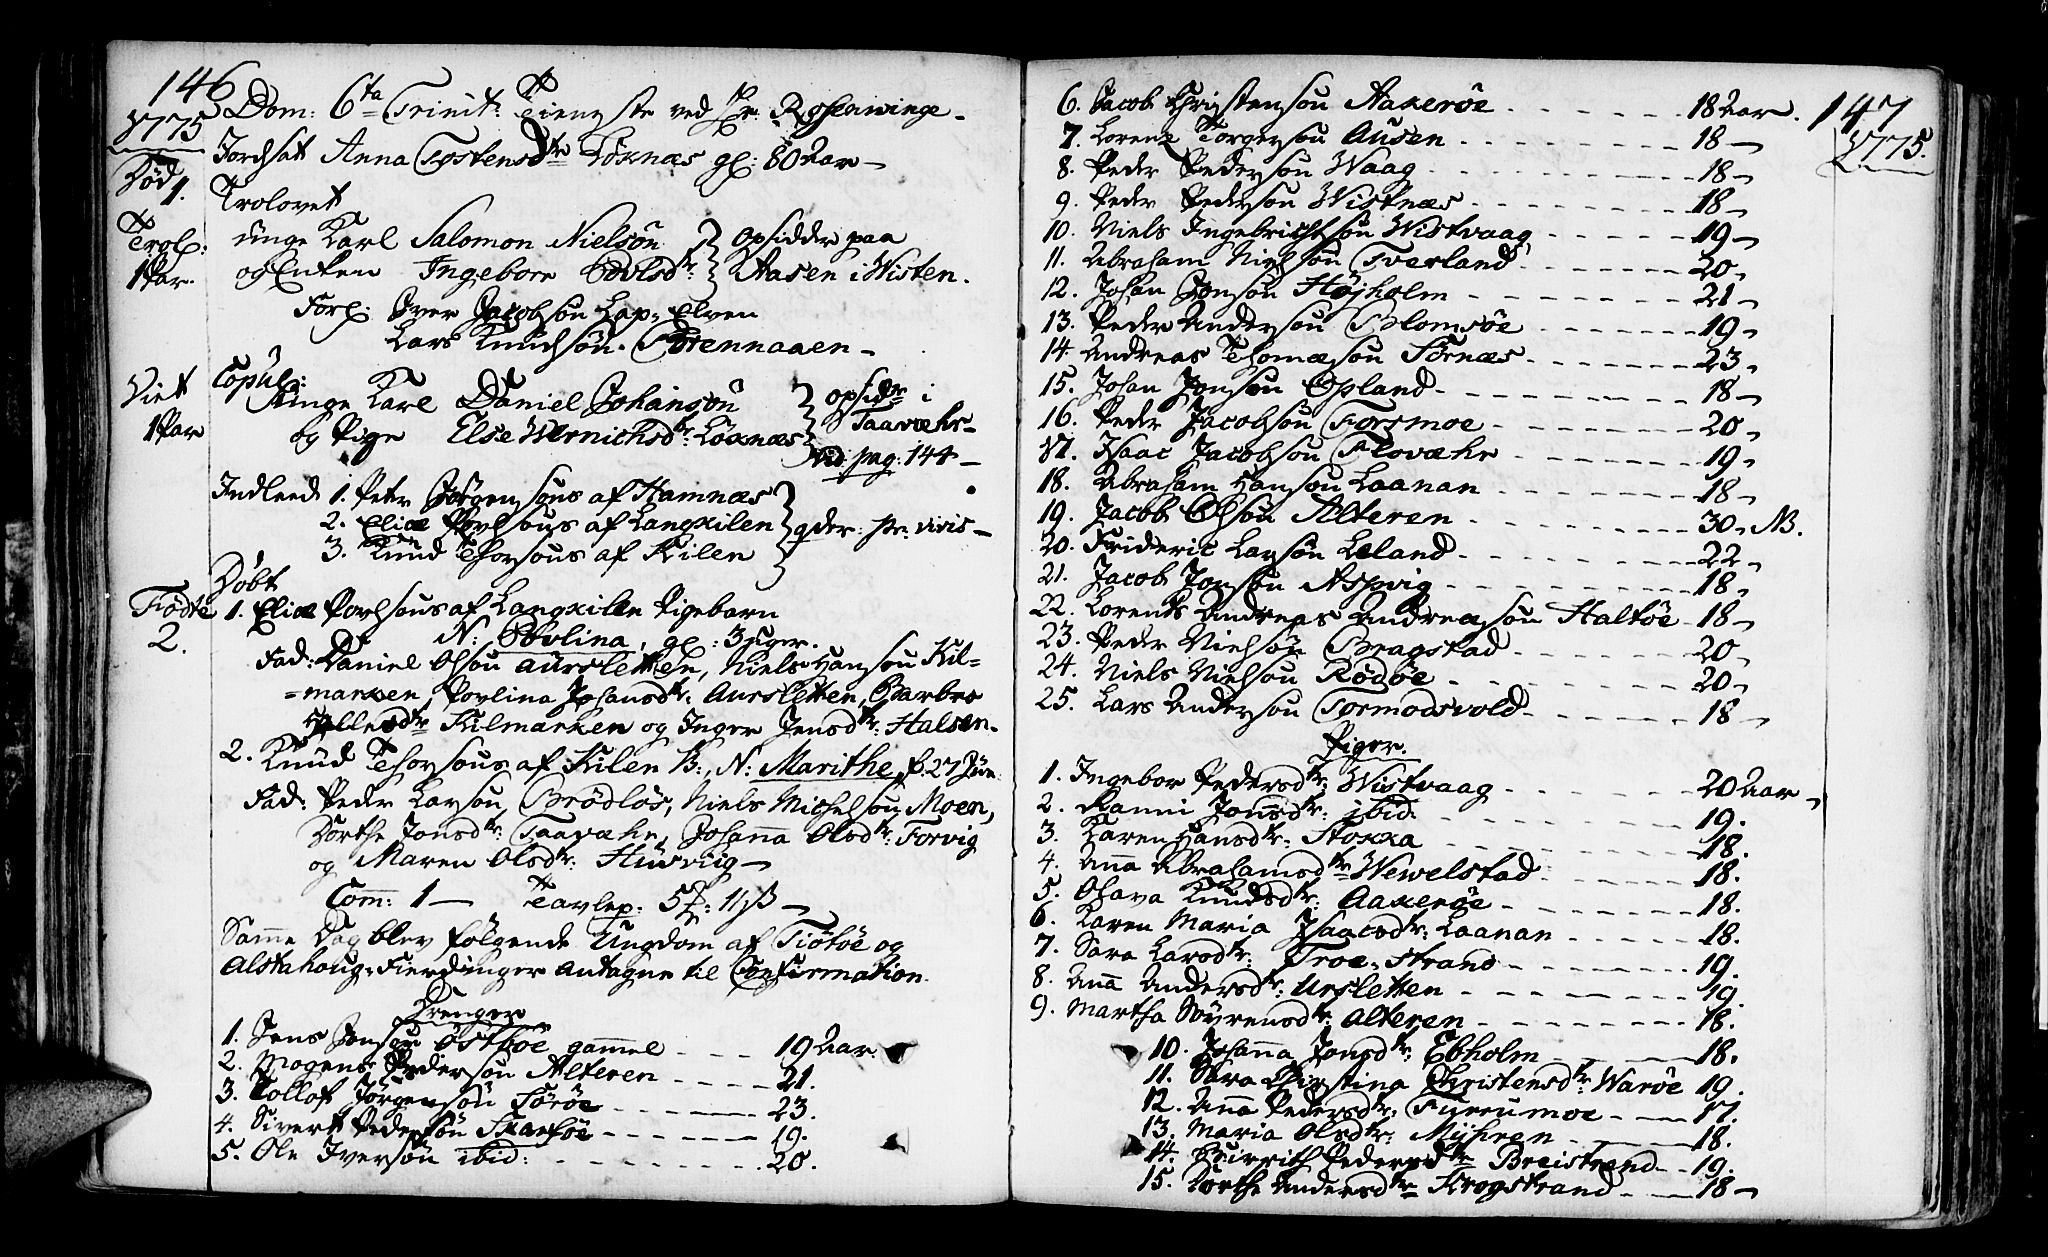 146
1775
Dom: 6ta Trinit: Tieneste ved Hr. Rosenwinge
Død
1.
Jordsat Anna Tostensdtr Løxnæs gl: 80 Aar
Trol:
1 Par.
Trolovet
unge Karl Salomon Nielsøn opsidder paa
og Enken Ingebore Povlsdtr: Aasen i Wisten.
Forl: Iver Jacobsøn Lap-Elven
Lars Knudsøn
Viet
1 Par
Copul:
Unge Karl Daniel Johansøn opsidr i
og Pige Else Wernichsdtr: Løxnæs Taavæhr
Vid: pag: 144
Indleed 1. Petr Jørgensøns af Hamnæs
2. Eliæ Povlsøns af Langkilen qder: pr: vivis
3. Knud Thorsøns af Kilen
Fødte
2.
Døbt
1. Eliæ Povlsøns af Langkilen Pigebarn
N: Povlina, gl: 3 uger.
Fad: Daniel Olsøn Aursletten, Niels Hansøn Kil=
=marken, Povlina Johansdtr: Aursletten, Barbro
Kilmarken og Inger Jensdtr: Halsen.
2. Knud Thorsøns af Kilen B:, N: Marithe, f. 27 Jun
Fad: Peder Larsøn Brødløs, Niels Michelsøn Moen,
Dorthe Jonsdtr: Taavæhr, Johanna Olsdtr: Forvig
og Maren Olsdtr: Husviig
Com: 1 Tavlep: 5 11 ß
Samme Dag blev følgende Ungdom af Tiøtøe og
Alstahoug-Fierdinger antagne til Confirmation.
Drenger
1. Jens Jonsøn Østbøe gammel 19 Aar.
2. Mogens Pedersøn Alteren 21.
3. Tollof Jørgensøn Sørøe 23.
4. Sivert Pedersøn 19.
5. Ole Iversøn ibid: 20.
147
1775.
6. Jacob Christensøn Aakerøe 18 Aar.
7. Lorenz Torgersøn Ausen 18
8. Peder Pedersøn Waag 18
9. Peder Pedersøn Wistnæs 18
10. Niels Ingebrichtsøn Wistvaag 19
11. Abraham Nielsøn Tverland 20
12. Johan Jonsøn Højholm 21
13. Peder Andersøn Blomsøe 19
14. Andreas Thomæsøn Sørnæs 23
15. Johan Jonsøn Opland 18
16. Peder Jacobsøn Forsmoe 20
17. Isaac Jacobsøn Flovæhr 19
18. Abraham Hansøn Laanan 18
19. Jacob Olsøn Alteren 30 NB.
20. Frideric Larsøn Leland 22
21. Jacob Jonsøn Aspvig 18
22. Lorents Andreas Andreasøn Haltøe 18
23. Peder Nielsøn Bragstad 20
24. Niels Nielsøn Rødøe 20
25. Lars Andersøn Tormodsvold 18
Piger.
1. Ingebor Pedersdtr: Wistvaag 20 Aar
2. Ranni Jonsdtr: ibid. 19.
3. Karen Hansdtr: Stokka 18.
4. Anna Abrahamsdtr Wewelstad 18.
5. Olava Knudsdtr: Aakerøe 18.
6. Karen Maria Isaacsdtr: Laanan 18.
7. Sara Larsdtr: Troe-Strand 19.
8. Anna Andersdtr: Ursletten 19.
9. Martha Søvrensdtr: Alteren 18.
10. Johanna Jonsdtr: Ebholm 18.
11. Sara Christina Christensdtr: Warøe 19.
12. Anna Pedersdtr: Fyrrumoe 17.
13. Maria Olsdtr: Myhren 18.
14. Birrith Pedersdtr Breistrand 19.
15. Dorthe Andersdtr Krogstrand 18